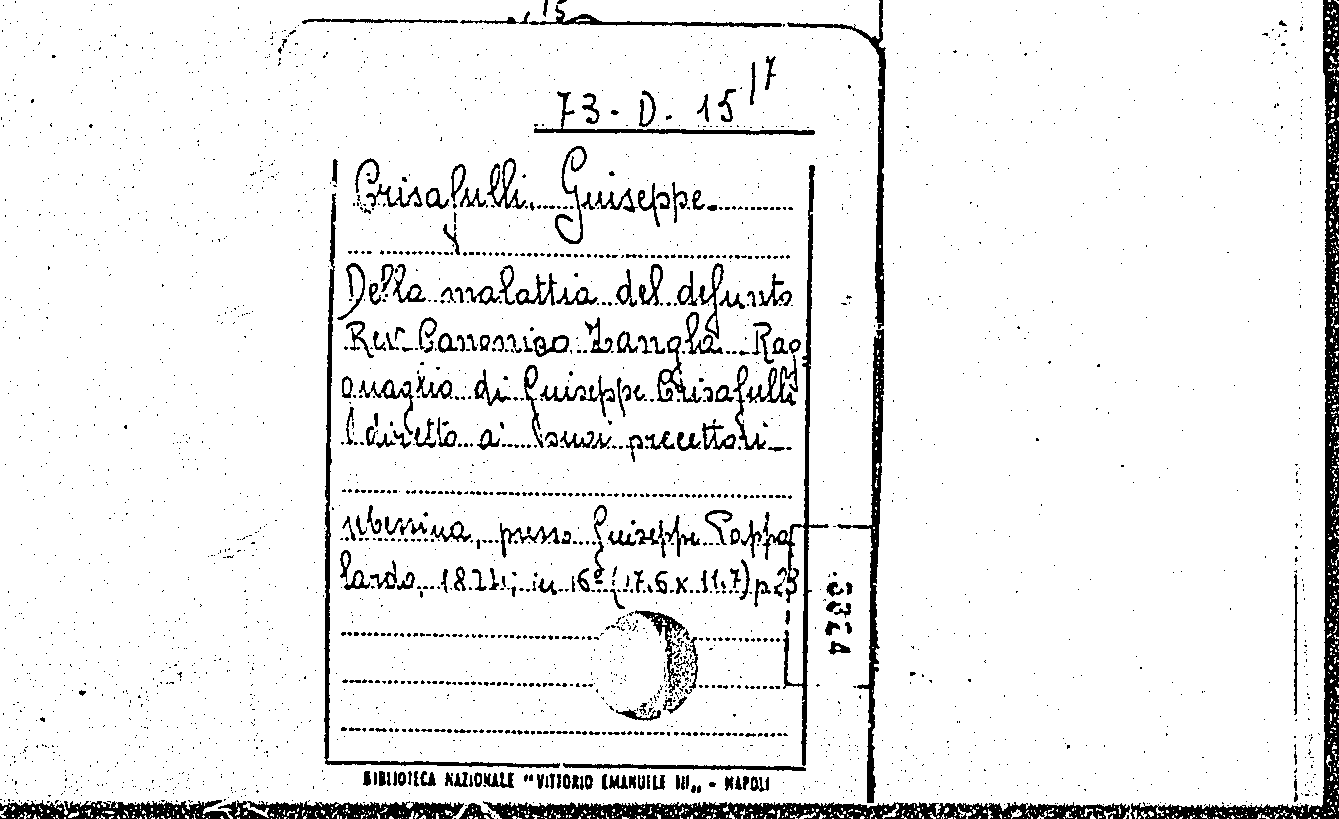 15
73-D. 15 17
Crisafulli, Giuseppe.
Della malattia del defunto
Rev. Canonico Zanghà. Rag
guaglio di Giuseppe Crisafulli
diretto ai suoi precettori
Messina, presso Giuseppe Pappa
lardo, 1821; in 16º (17.6 x 11.7) p 23
3324
BIBLIOTECA NAZIONALE "VITTORIO EMANUELE III„ - NAPOLI